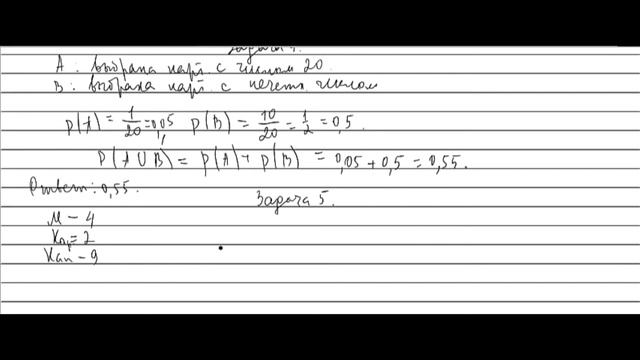 Задача 4.
A: выбрана карт. с числом 20
B: выбрана карт. с нечетн числом
P(A) = 1/20 = 0,05 P(B) = 10/20 = 1/2 = 0,5.
P(A∪B) = P(A) + P(B) = 0,05 + 0,5 = 0,55.
Ответ: 0,55.
Задача 5.
М – 4
Кар = 2
Кап – 9